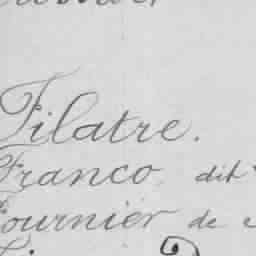 Filatre.
Franco, dit
Fournier de